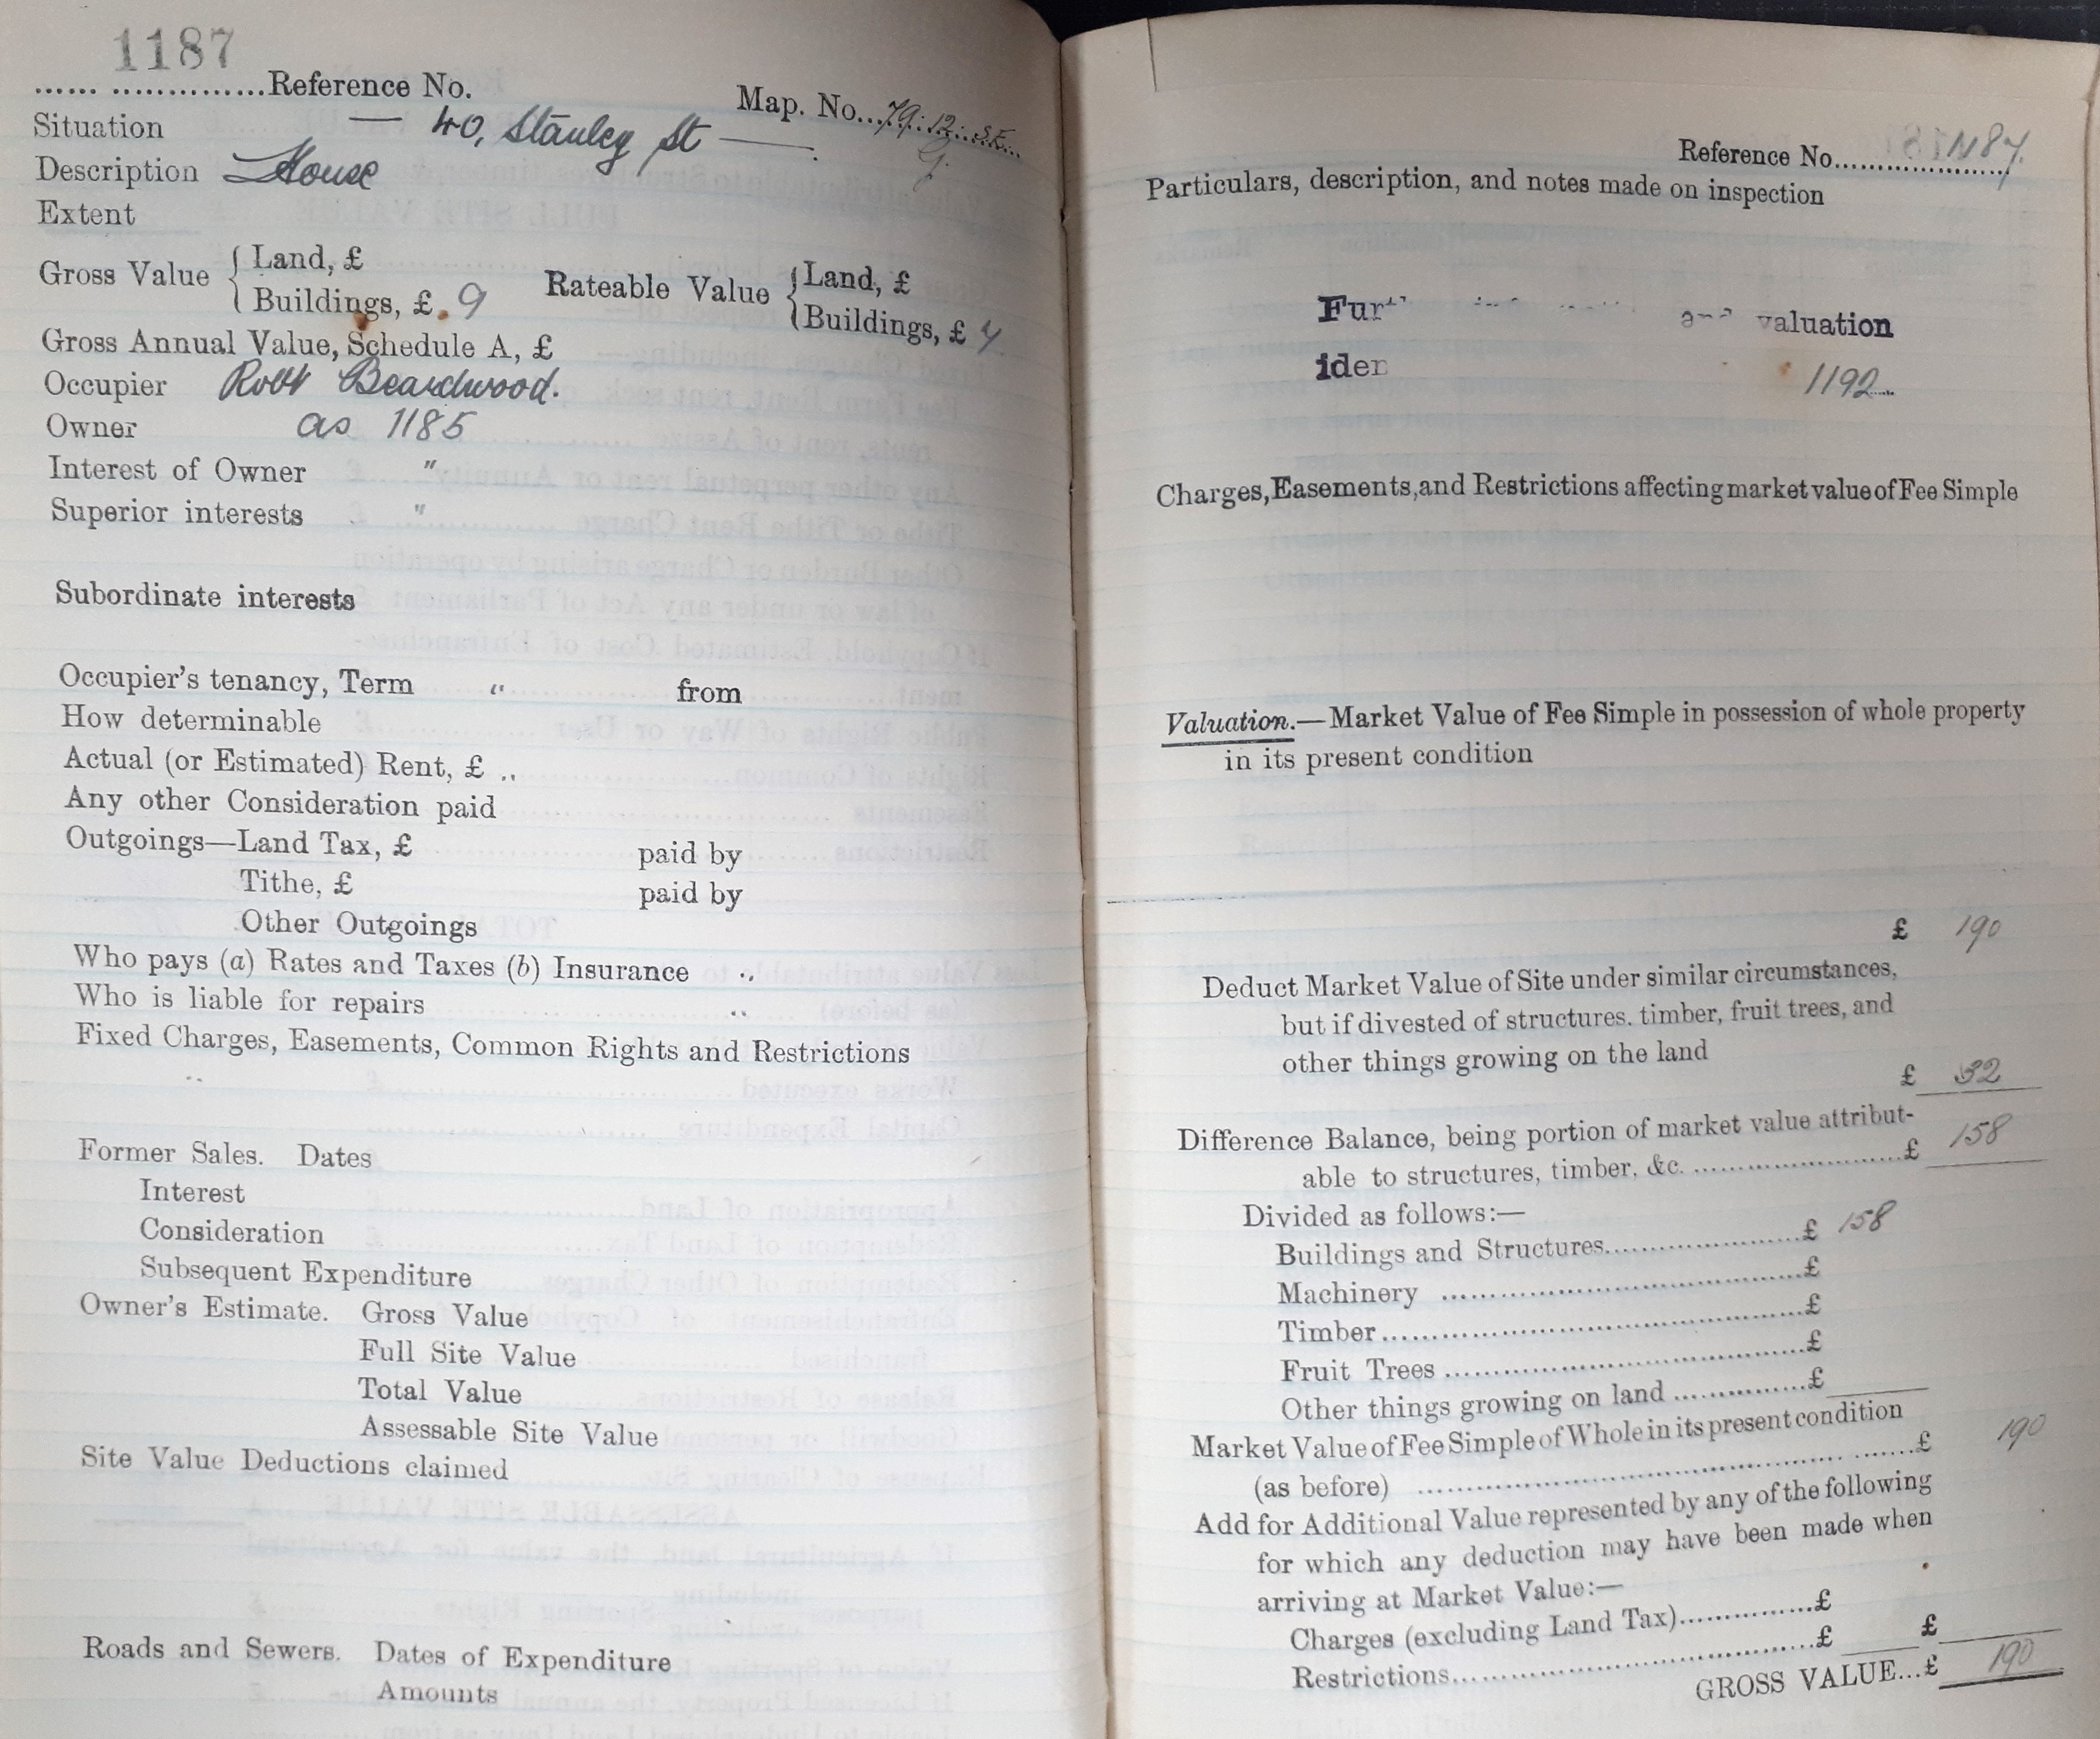 1187
...... ..............Reference No.
Map. No...79:12:S.E...
G.
Situation — 40, Stanley St —
Description House
Extent
Gross Value { Land, £
Buildings, £ 9
Rateable Value { Land, £
Buildings, £ 7
Gross Annual Value, Schedule A, £
Occupier Robt Beardwood.
Owner as 1185
Interest of Owner "
Superior interests "
Subordinate interests
Occupier's tenancy, Term " from
How determinable
Actual (or Estimated) Rent, £ "
Any other Consideration paid
Outgoings—Land Tax, £ paid by
Tithe, £ paid by
Other Outgoings
Who pays (a) Rates and Taxes (b) Insurance "
Who is liable for repairs "
Fixed Charges, Easements, Common Rights and Restrictions
"
Former Sales. Dates
Interest
Consideration
Subsequent Expenditure
Owner's Estimate. Gross Value
Full Site Value
Total Value
Assessable Site Value
Site Value Deductions claimed
Roads and Sewers. Dates of Expenditure
Amounts
Reference No. 1187.
Particulars, description, and notes made on inspection
and valuation
1192
Charges, Easements, and Restrictions affecting market value of Fee Simple
Valuation.—Market Value of Fee Simple in possession of whole property
in its present condition
£ 190
Deduct Market Value of Site under similar circumstances,
but if divested of structures. timber, fruit trees, and
other things growing on the land
£ 32
Difference Balance, being portion of market value attribut-
able to structures, timber, &c. ........................£ 158
Divided as follows:—
Buildings and Structures........................£ 158
Machinery ........................£
Timber........................£
Fruit Trees ........................£
Other things growing on land ...............£
Market Value of Fee Simple of Whole in its present condition
(as before) ........................£ 190
Add for Additional Value represented by any of the following
for which any deduction may have been made when
arriving at Market Value:—
Charges (excluding Land Tax)...............£
Restrictions........................£ £
GROSS VALUE...£ 190